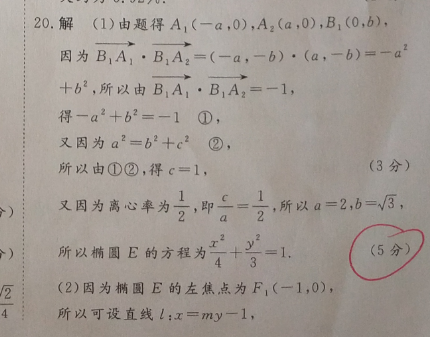 20. 解 (1)由题得 A₁(−a,0),A₂(a,0),B₁(0,b),
因为 B₁A₁ · B₁A₂ =(−a,−b)·(a,−b)=−a²
+b²,所以由 B₁A₁ · B₁A₂ =−1,
得−a²+b²=−1 ①,
又因为 a²=b²+c² ②,
所以由①②,得 c=1, (3 分)
又因为离心率为 1/2 ,即 c/a = 1/2 ,所以 a=2,b=√3 ,
所以椭圆 E 的方程为 x²/4 + y²/3 =1. (5 分)
(2)因为椭圆 E 的左焦点为 F₁(−1,0),
所以可设直线 l:x=my−1,